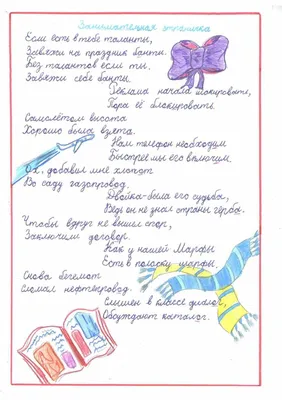 Занимательная страничка
Если есть в тебе таланты,
Завяжи на праздник банты.
Без талантов если ты.
Завяжи себе банты.
Реклама начала шокировать,
Пора её блокировать.
Самолётом высота
Хорошо была взята.
Нам телефон необходим
Быстрей мы его включим.
Ох, добавил мне хлопот
Во саду газопровод.
Двойка-была его судьба,
Ведь он не знал страны герба.
Чтобы вдруг не вышел спор,
Заключим договор.
Как у нашей Марфы
Есть в полоску шарфы.
Снова бегемот
Сломал нефтепровод.
Слышен в классе диалог,
Обсуждают каталог.